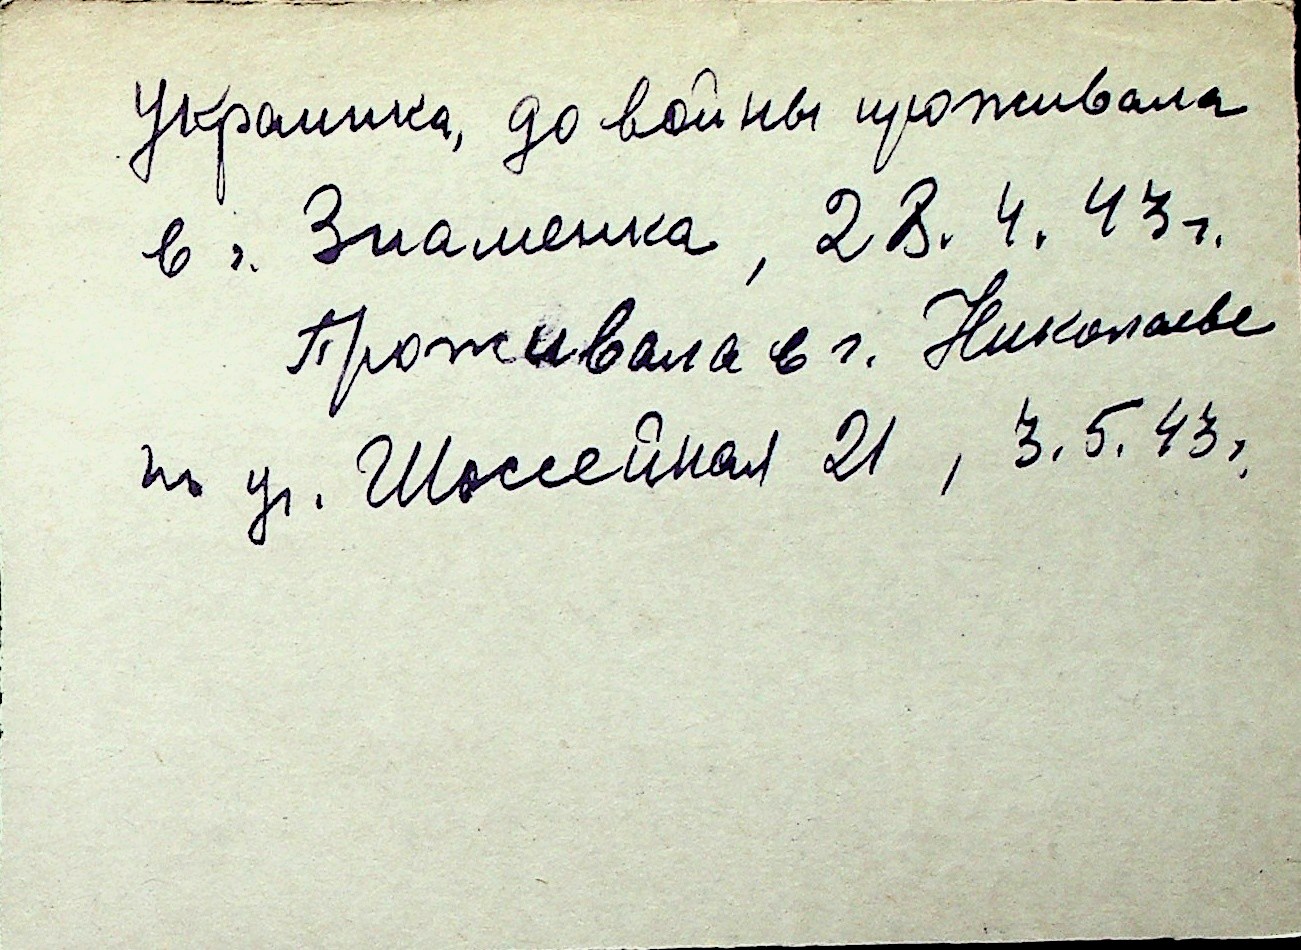 Украинка, до войны проживала
в г. Знаменка, 28.4.43г.
Проживала в г. Николаеве
по ул. Шоссейная 21, 3.5.43г.